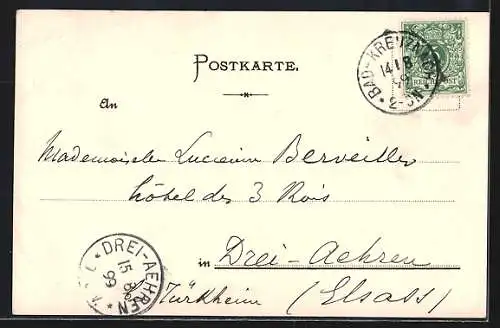 POSTKARTE.
BAD-KREUZNACH
14 8
99
2-3N
REICHSPOST
An
Mademoiselle Lucienne Berveiller
hôtel des 3 Rois
in Drei-Aehren
Türkheim (Elsass)
DREI-AEHREN
15 8
99